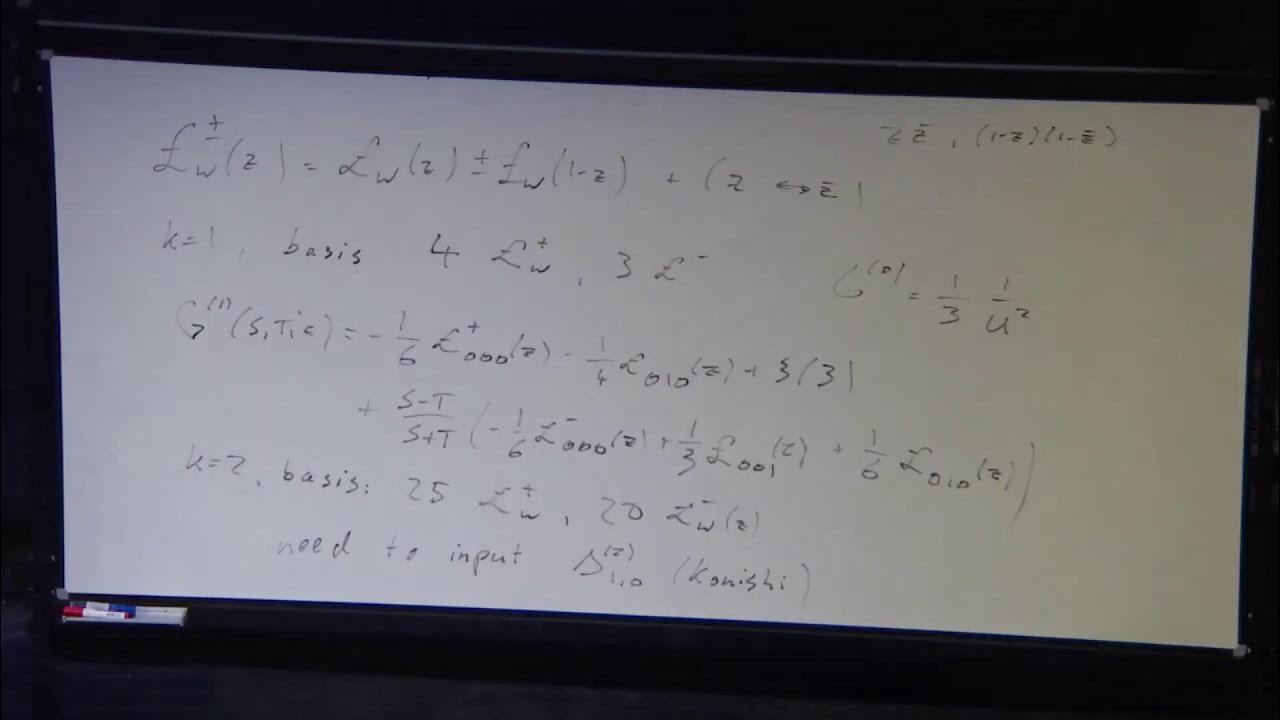 z z̄ , (1-z)(1-z̄)
ℒ^±_w(z) = ℒ_w(z) ± ℒ_w(1-z) + (z ↔ z̄)
k=1, basis 4 ℒ^+_w , 3 ℒ^-
G^(0) = 1/3 1/U^2
G^(1)(S,T;z) = -1/6 ℒ^+_000(z) - 1/4 ℒ_010(z) + ζ(3)
+ (S-T)/(S+T) (-1/6 ℒ^-_000(z) + 1/3 ℒ_001(z) + 1/6 ℒ_010(z))
k=2, basis: 25 ℒ^+_w , 20 ℒ^-_w(z)
need to input Δ^(2)_1,0 (Konishi)